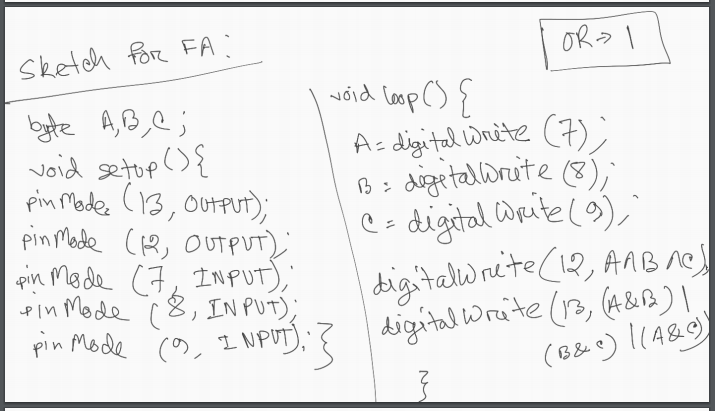 Sketch for FA:
byte A,B,C;
void setup(){
pinMode (13, OUTPUT);
pinMode (12, OUTPUT);
pin Mode (7, INPUT);
pin Mode (8, INPUT);
pin Mode (9, INPUT); }
OR→ 1
void loop() {
A = digitalWrite (7);
B = digitalWrite (8);
C = digital Write (9);
digitalWrite (12, A^B^C);
digitalWrite (13, (A&B) |
(B&C) | (A&C)
}